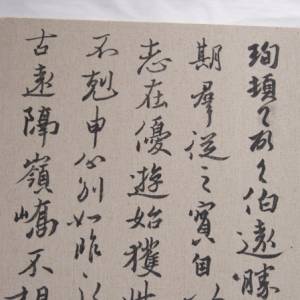 珣頓首頓首伯遠勝
期羣從之寶自
志在優遊始獲
不剋申分別如昨
古遠隔嶺嶠不相